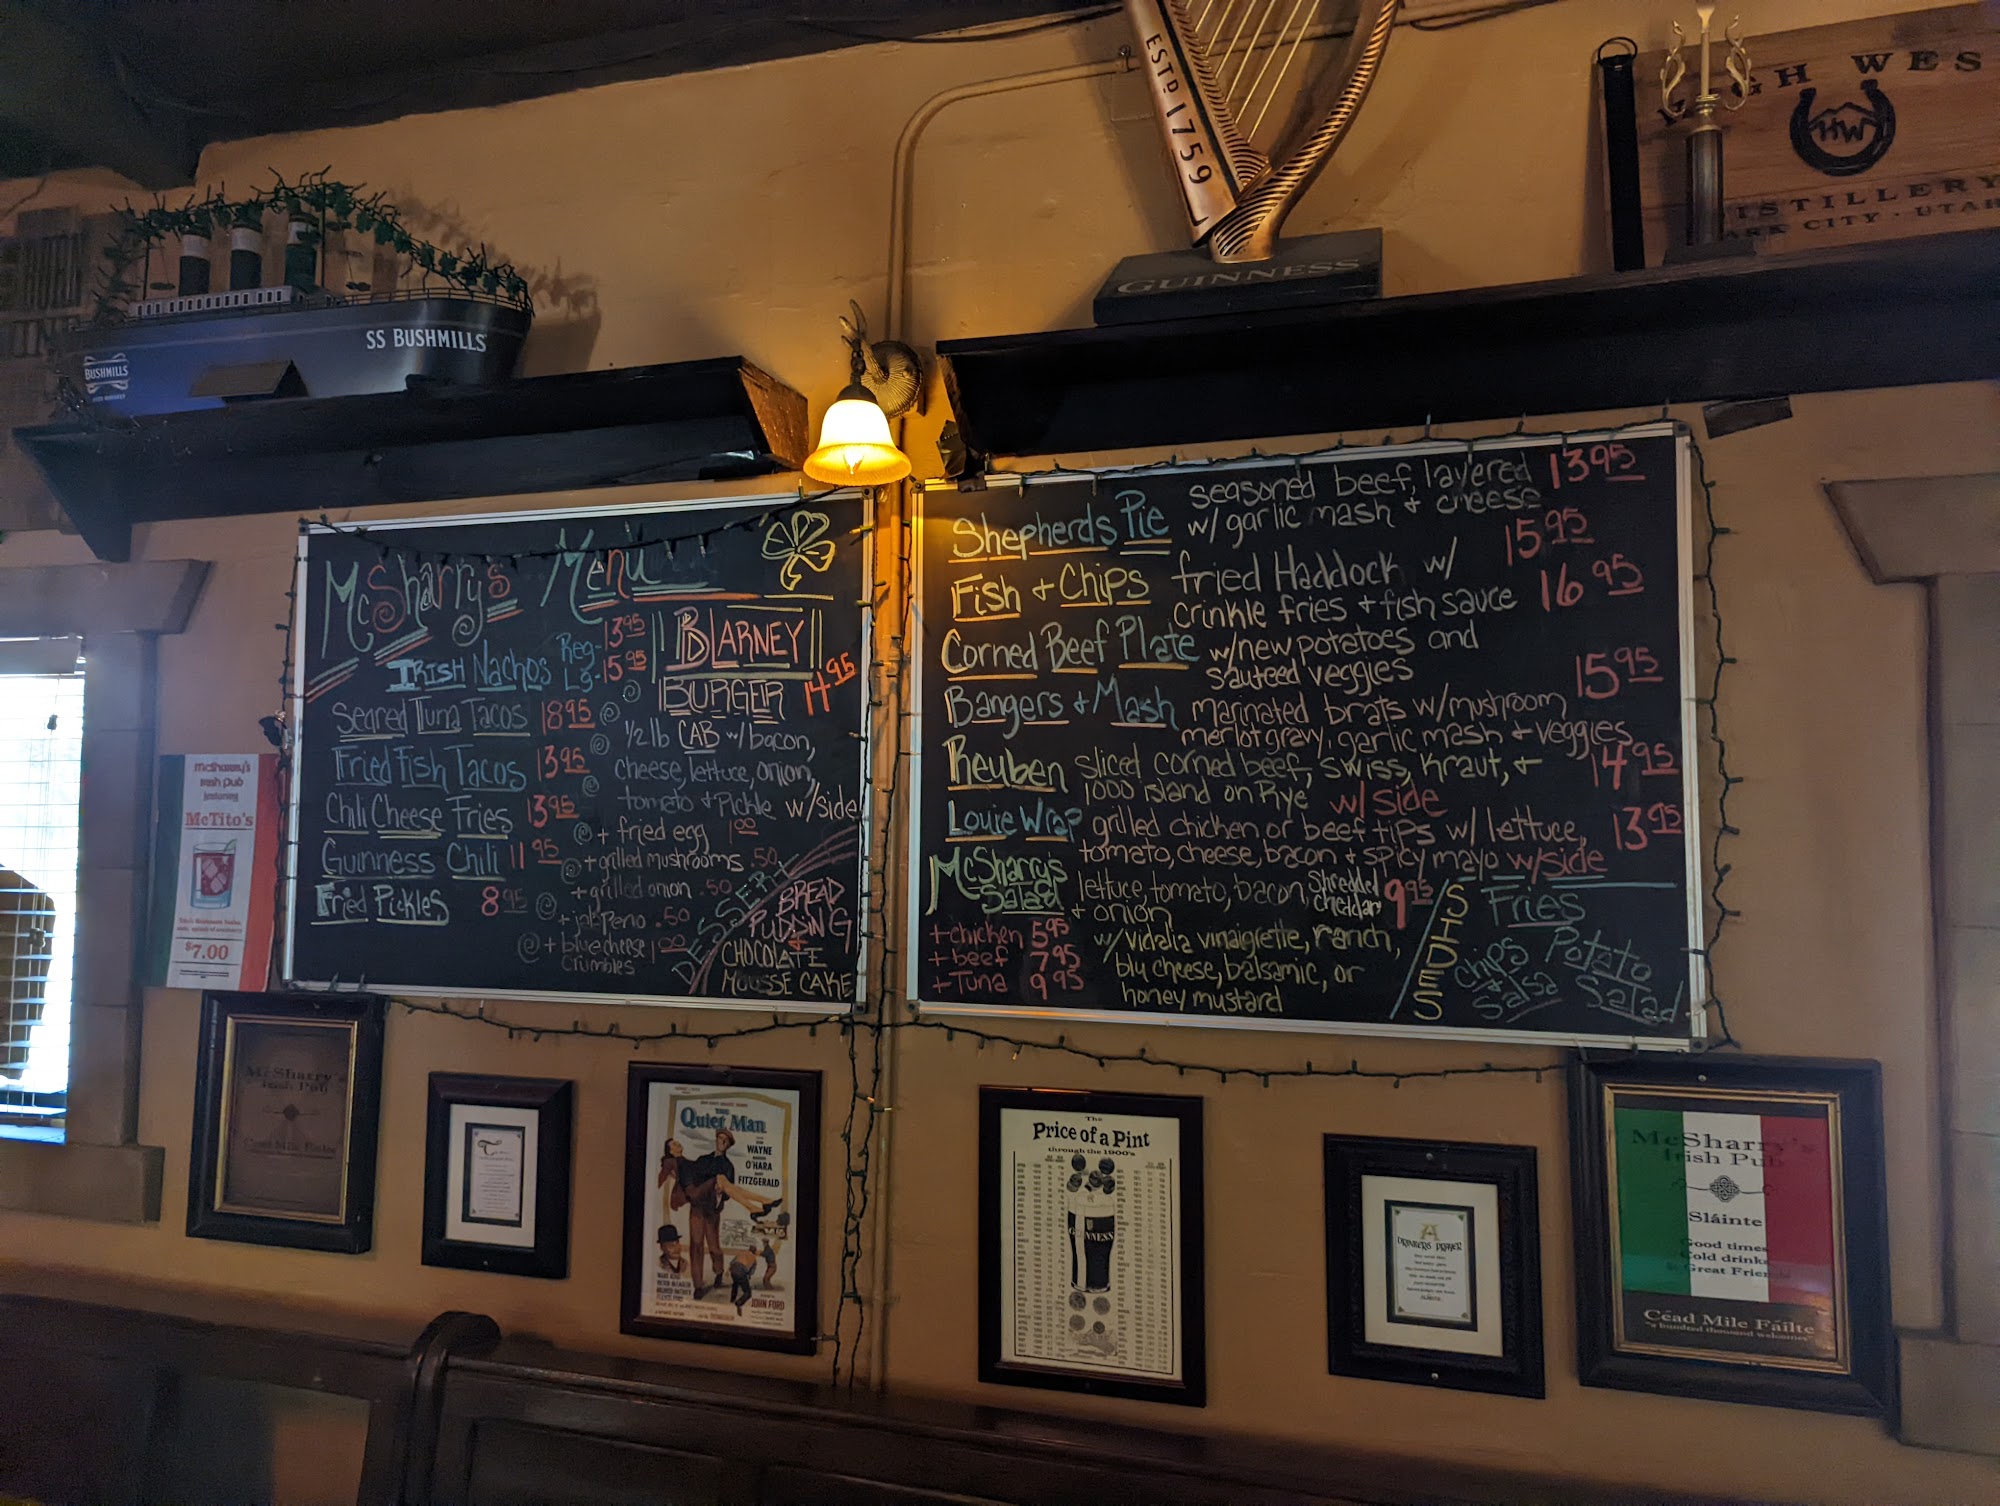 ESTD 1759
GUINNESS
HIGH WES
HW
DISTILLERY
PARK CITY · UTAH
SS BUSHMILLS
BUSHMILLS
McSharry's Menu
IRISH NACHOS Reg- 13.95
Lg- 15.95
Seared Tuna Tacos 18.95
Fried Fish Tacos 13.95
Chili Cheese Fries 13.95
Guinness Chili 11.95
Fried Pickles 8.95
BLARNEY
BURGER 14.95
1/2 lb CAB w/ bacon,
cheese, lettuce, onion,
tomato + Pickle w/side
+ fried egg 1.00
+ grilled mushrooms .50
+ grilled onion .50
+ jalapeno .50
+ blue cheese 1.00
crumbles
DESSERT
BREAD
PUDDING
+
CHOCOLATE
MOUSSE CAKE
Shepherds Pie seasoned beef, layered 13.95
w/ garlic mash + cheese
Fish + Chips fried Haddock w/ 15.95
crinkle fries + fish sauce
Corned Beef Plate w/new potatoes and 16.95
sauteed veggies
Bangers + Mash marinated brats w/mushroom 15.95
merlot gravy, garlic mash + veggies
Reuben sliced corned beef, swiss, kraut, + 14.95
1000 island on Rye w/ side
Louie Wrap grilled chicken or beef tips w/ lettuce, 13.95
tomato, cheese, bacon + spicy mayo w/side
McSharry's Salad lettuce, tomato, bacon, shredded cheddar, 9.95
+ onion
+chicken 5.95
+ beef 7.95
+Tuna 9.95
w/ vidalia vinaigrette, ranch,
blu cheese, balsamic, or
honey mustard
SIDES
Fries
Chips + Salsa
Potato Salad
McSharry's
Irish Pub
featuring
McTito's
$7.00
McSharry's
Irish Pub
Céad Mile Fáilte
THE
Quiet Man
WAYNE
O'HARA
FITZGERALD
JOHN FORD
The
Price of a Pint
through the 1900's
GUINNESS
A
DRINKERS PRAYER
McSharry's
Irish Pub
Sláinte
Good times
Cold drinks
& Great Friends
Céad Mile Fáilte
"a hundred thousand welcomes"